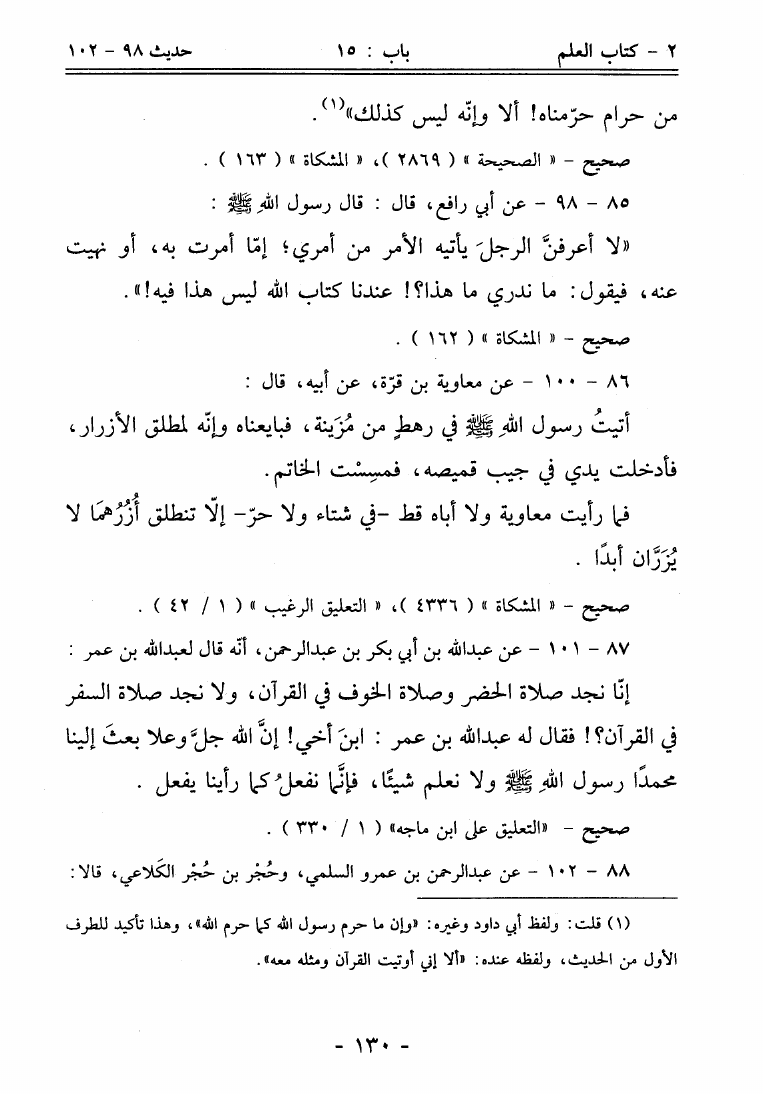 ٢ - كتاب العلم باب : ١٥ حديث ٩٨ - ١٠٢
من حرام حرّمناه! ألا وإنّه ليس كذلك»(١).
صحيح - « الصحيحة » ( ٢٨٦٩ )، « المشكاة » ( ١٦٣ ) .
٨٥ - ٩٨ - عن أبي رافع، قال : قال رسول اللهِ ﷺ :
«لا أعرفنَّ الرجلَ يأتيه الأمر من أمري؛ إمّا أمرت به، أو نهيت
عنه، فيقول: ما ندري ما هذا؟! عندنا كتاب الله ليس هذا فيه!».
صحيح - « المشكاة » ( ١٦٢ ) .
٨٦ - ١٠٠ - عن معاوية بن قرّة، عن أبيه، قال :
أتيتُ رسول اللهِ ﷺ في رهطٍ من مُزَينة، فبايعناه وإنّه لمطلق الأزرار،
فأدخلت يدي في جيب قميصه، فمسِسْت الخاتم.
فما رأيت معاوية ولا أباه قط -في شتاء ولا حرّ- إلّا تنطلق أُزُرُهمَا لا
يُزَرَّان أبدًا .
صحيح - « المشكاة » ( ٤٣٣٦ )، « التعليق الرغيب » ( ١ / ٤٢ ) .
٨٧ - ١٠١ - عن عبدالله بن أبي بكر بن عبدالرحمن، أنّه قال لعبدالله بن عمر :
إنّا نجد صلاة الحضر وصلاة الخوف في القرآن، ولا نجد صلاة السفر
في القرآن؟! فقال له عبدالله بن عمر : ابنَ أخي! إنَّ الله جلَّ وعلا بعثَ إلينا
محمدًا رسول اللهِ ﷺ ولا نعلم شيئًا، فإنَّما نفعلُ كما رأينا يفعل .
صحيح - «التعليق على ابن ماجه» ( ١ / ٣٣٠ ) .
٨٨ - ١٠٢ - عن عبدالرحمن بن عمرو السلمي، وحُجْر بن حُجْر الكَلاعي، قالا:
(١) قلت: ولفظ أبي داود وغيره: «وإن ما حرم رسول الله كما حرم الله»، وهذا تأكيد للطرف
الأول من الحديث، ولفظه عنده: «ألا إني أوتيت القرآن ومثله معه».
- ١٣٠ -